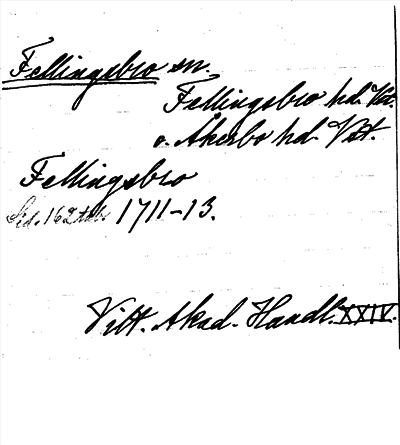 Fellingsbro sn.
Fellingsbro hd. Vst.
o. Åkerbo hd. Vst.
Fellingsbro
Sid. 162 1711-13.
Vitt. Akad. Handl. XXIV.